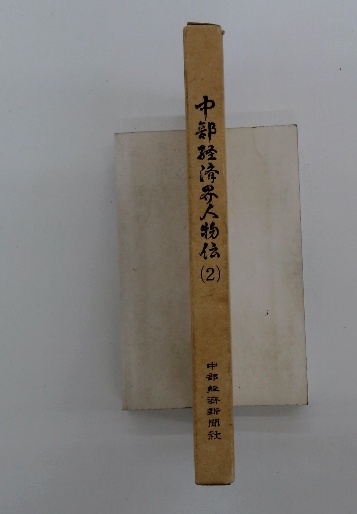 中部経済界人物伝(2)
中部経済新聞社